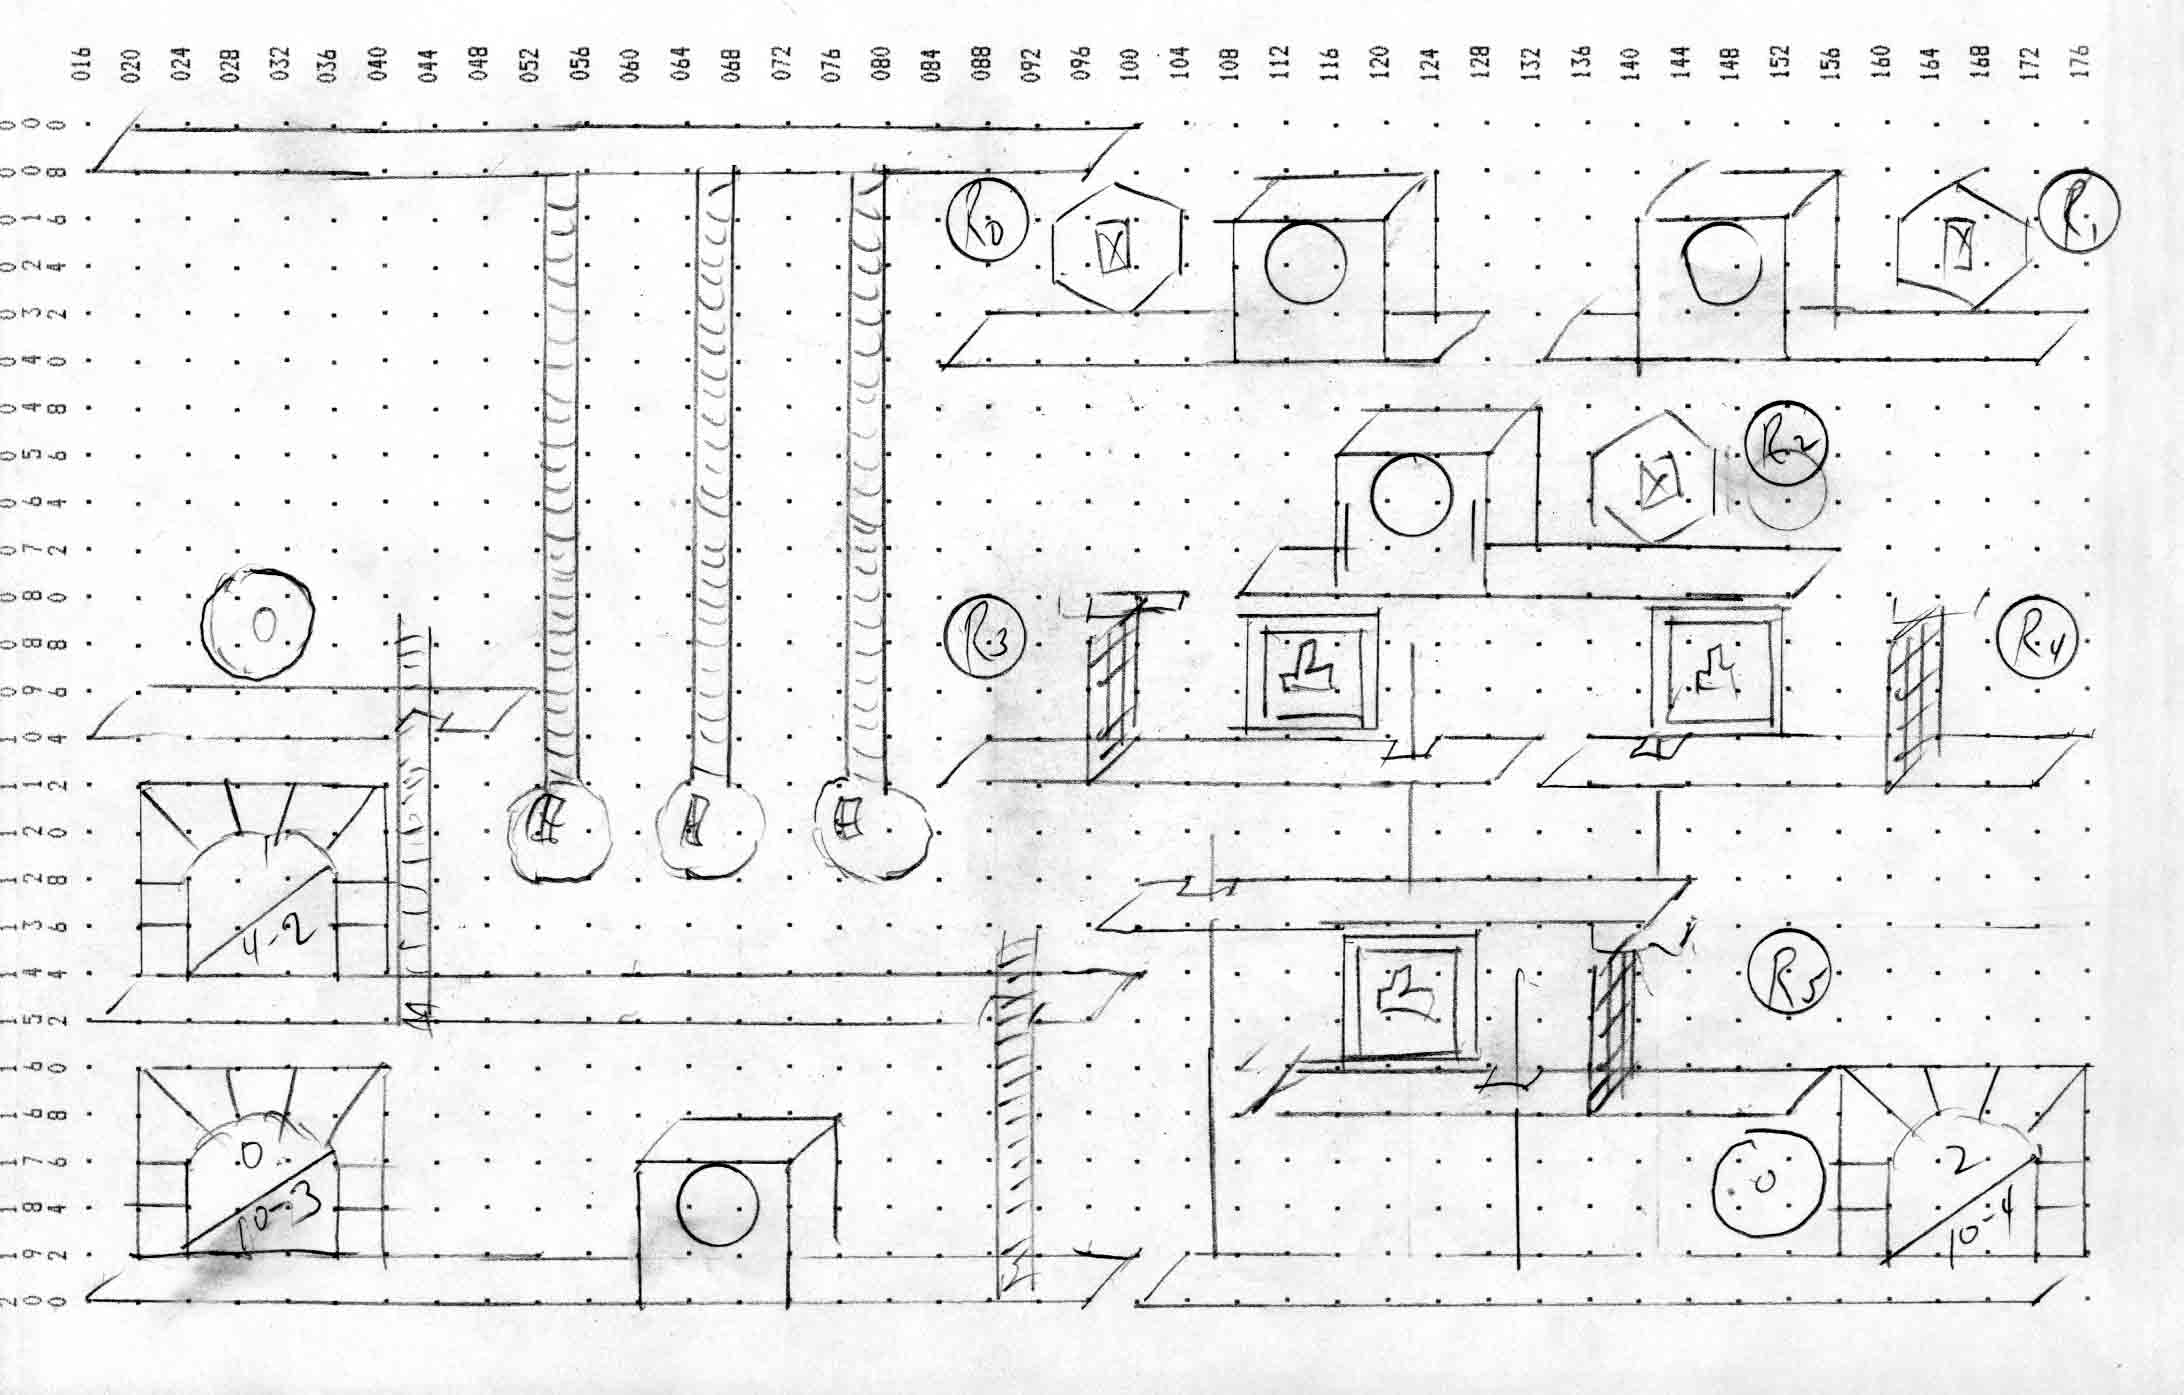 016 020 024 028 032 036 040 044 048 052 056 060 064 068 072 076 080 084 088 092 096 100 104 108 112 116 120 124 128 132 136 140 144 148 152 156 160 164 168 172 176
000
008
R0 R1
016
024
032
040
048
056
R2
064
072
080
088
R3 R4
096
104
112
120
128
136
4-2
144
R5
152
160
168
176
0 2
184
0
10-3 10-4
192
200